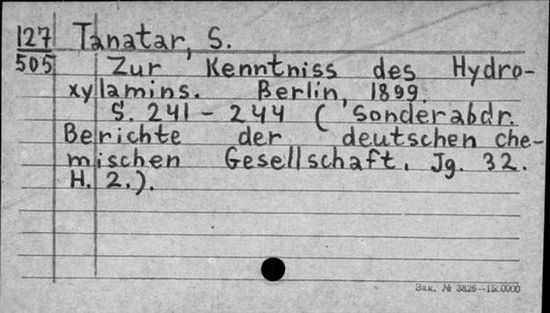 127 Tanatar, S.
505 Zur Kenntniss des Hydro-
xylamins. Berlin, 1899.
S. 241 - 244 ( Sonderabdr.
Berichte der deutschen che-
mischen Gesellschaft. Jg. 32.
H. 2.).
Зак. № 3826—15.0000